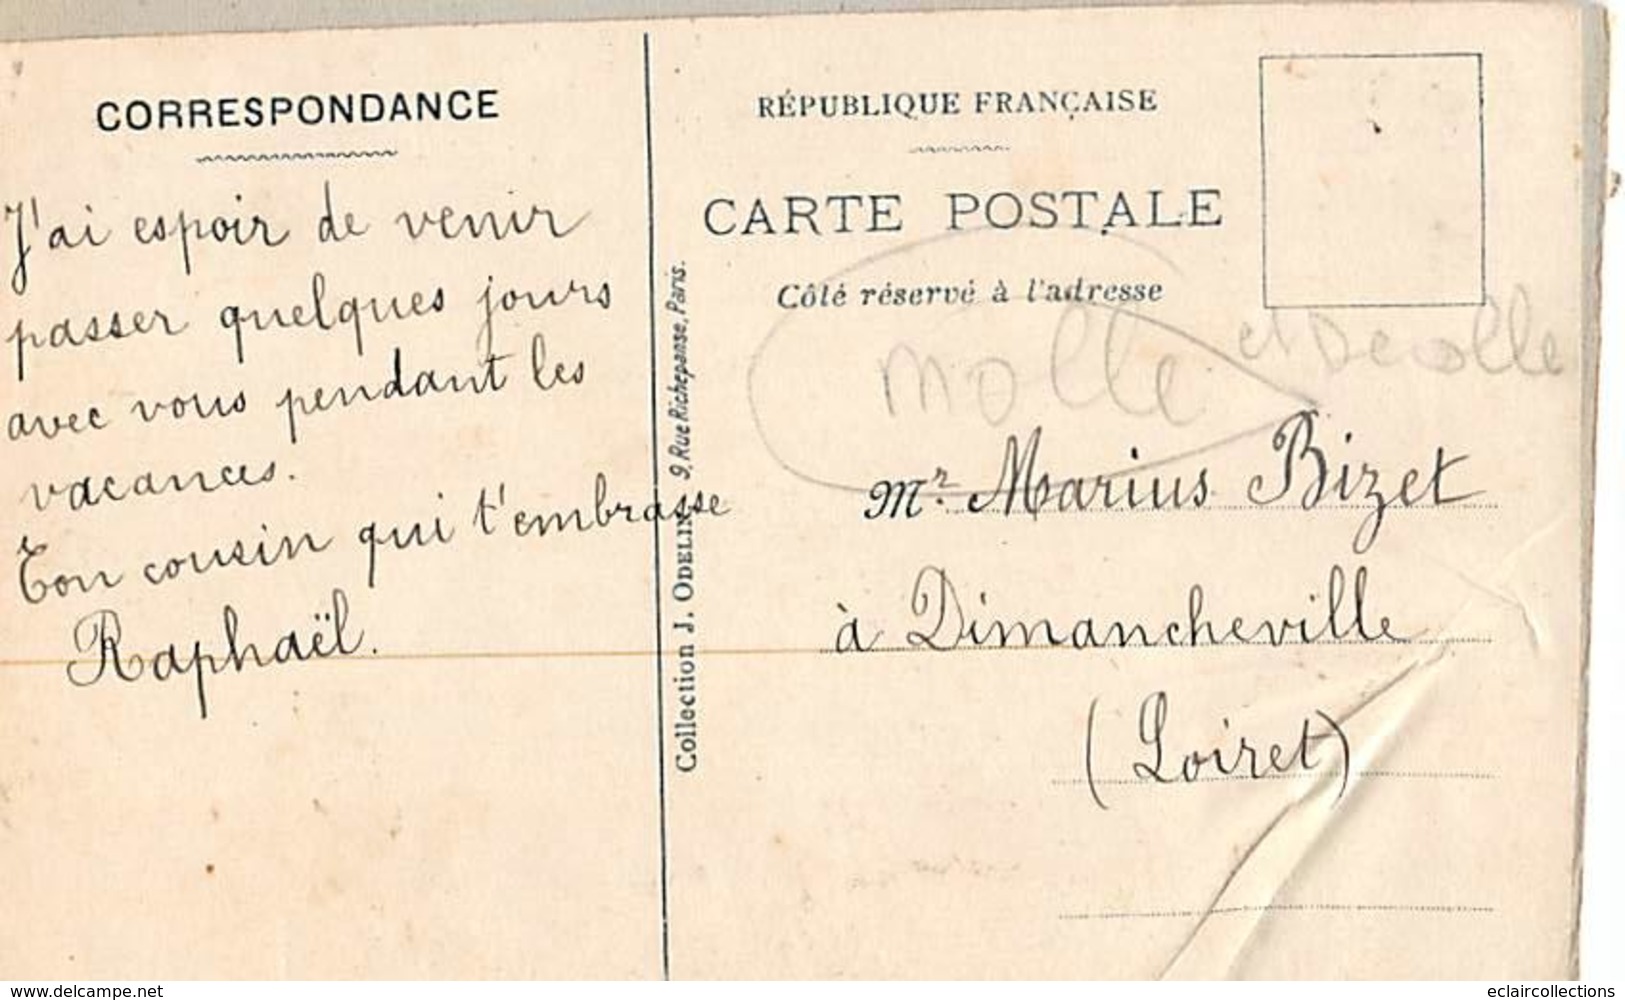 CORRESPONDANCE
J'ai espoir de venir
passer quelques jours
avec vous pendant les
vacances.
Ton cousin qui t'embrasse
Raphaël.
Collection J. ODELIN, 9, Rue Richepanse, Paris.
RÉPUBLIQUE FRANÇAISE
CARTE POSTALE
Côté réservé à l'adresse
Molle et Decolle
Mr. Marius Bizet
à Dimancheville
(Loiret)
www.delcampe.net
eclaircollections